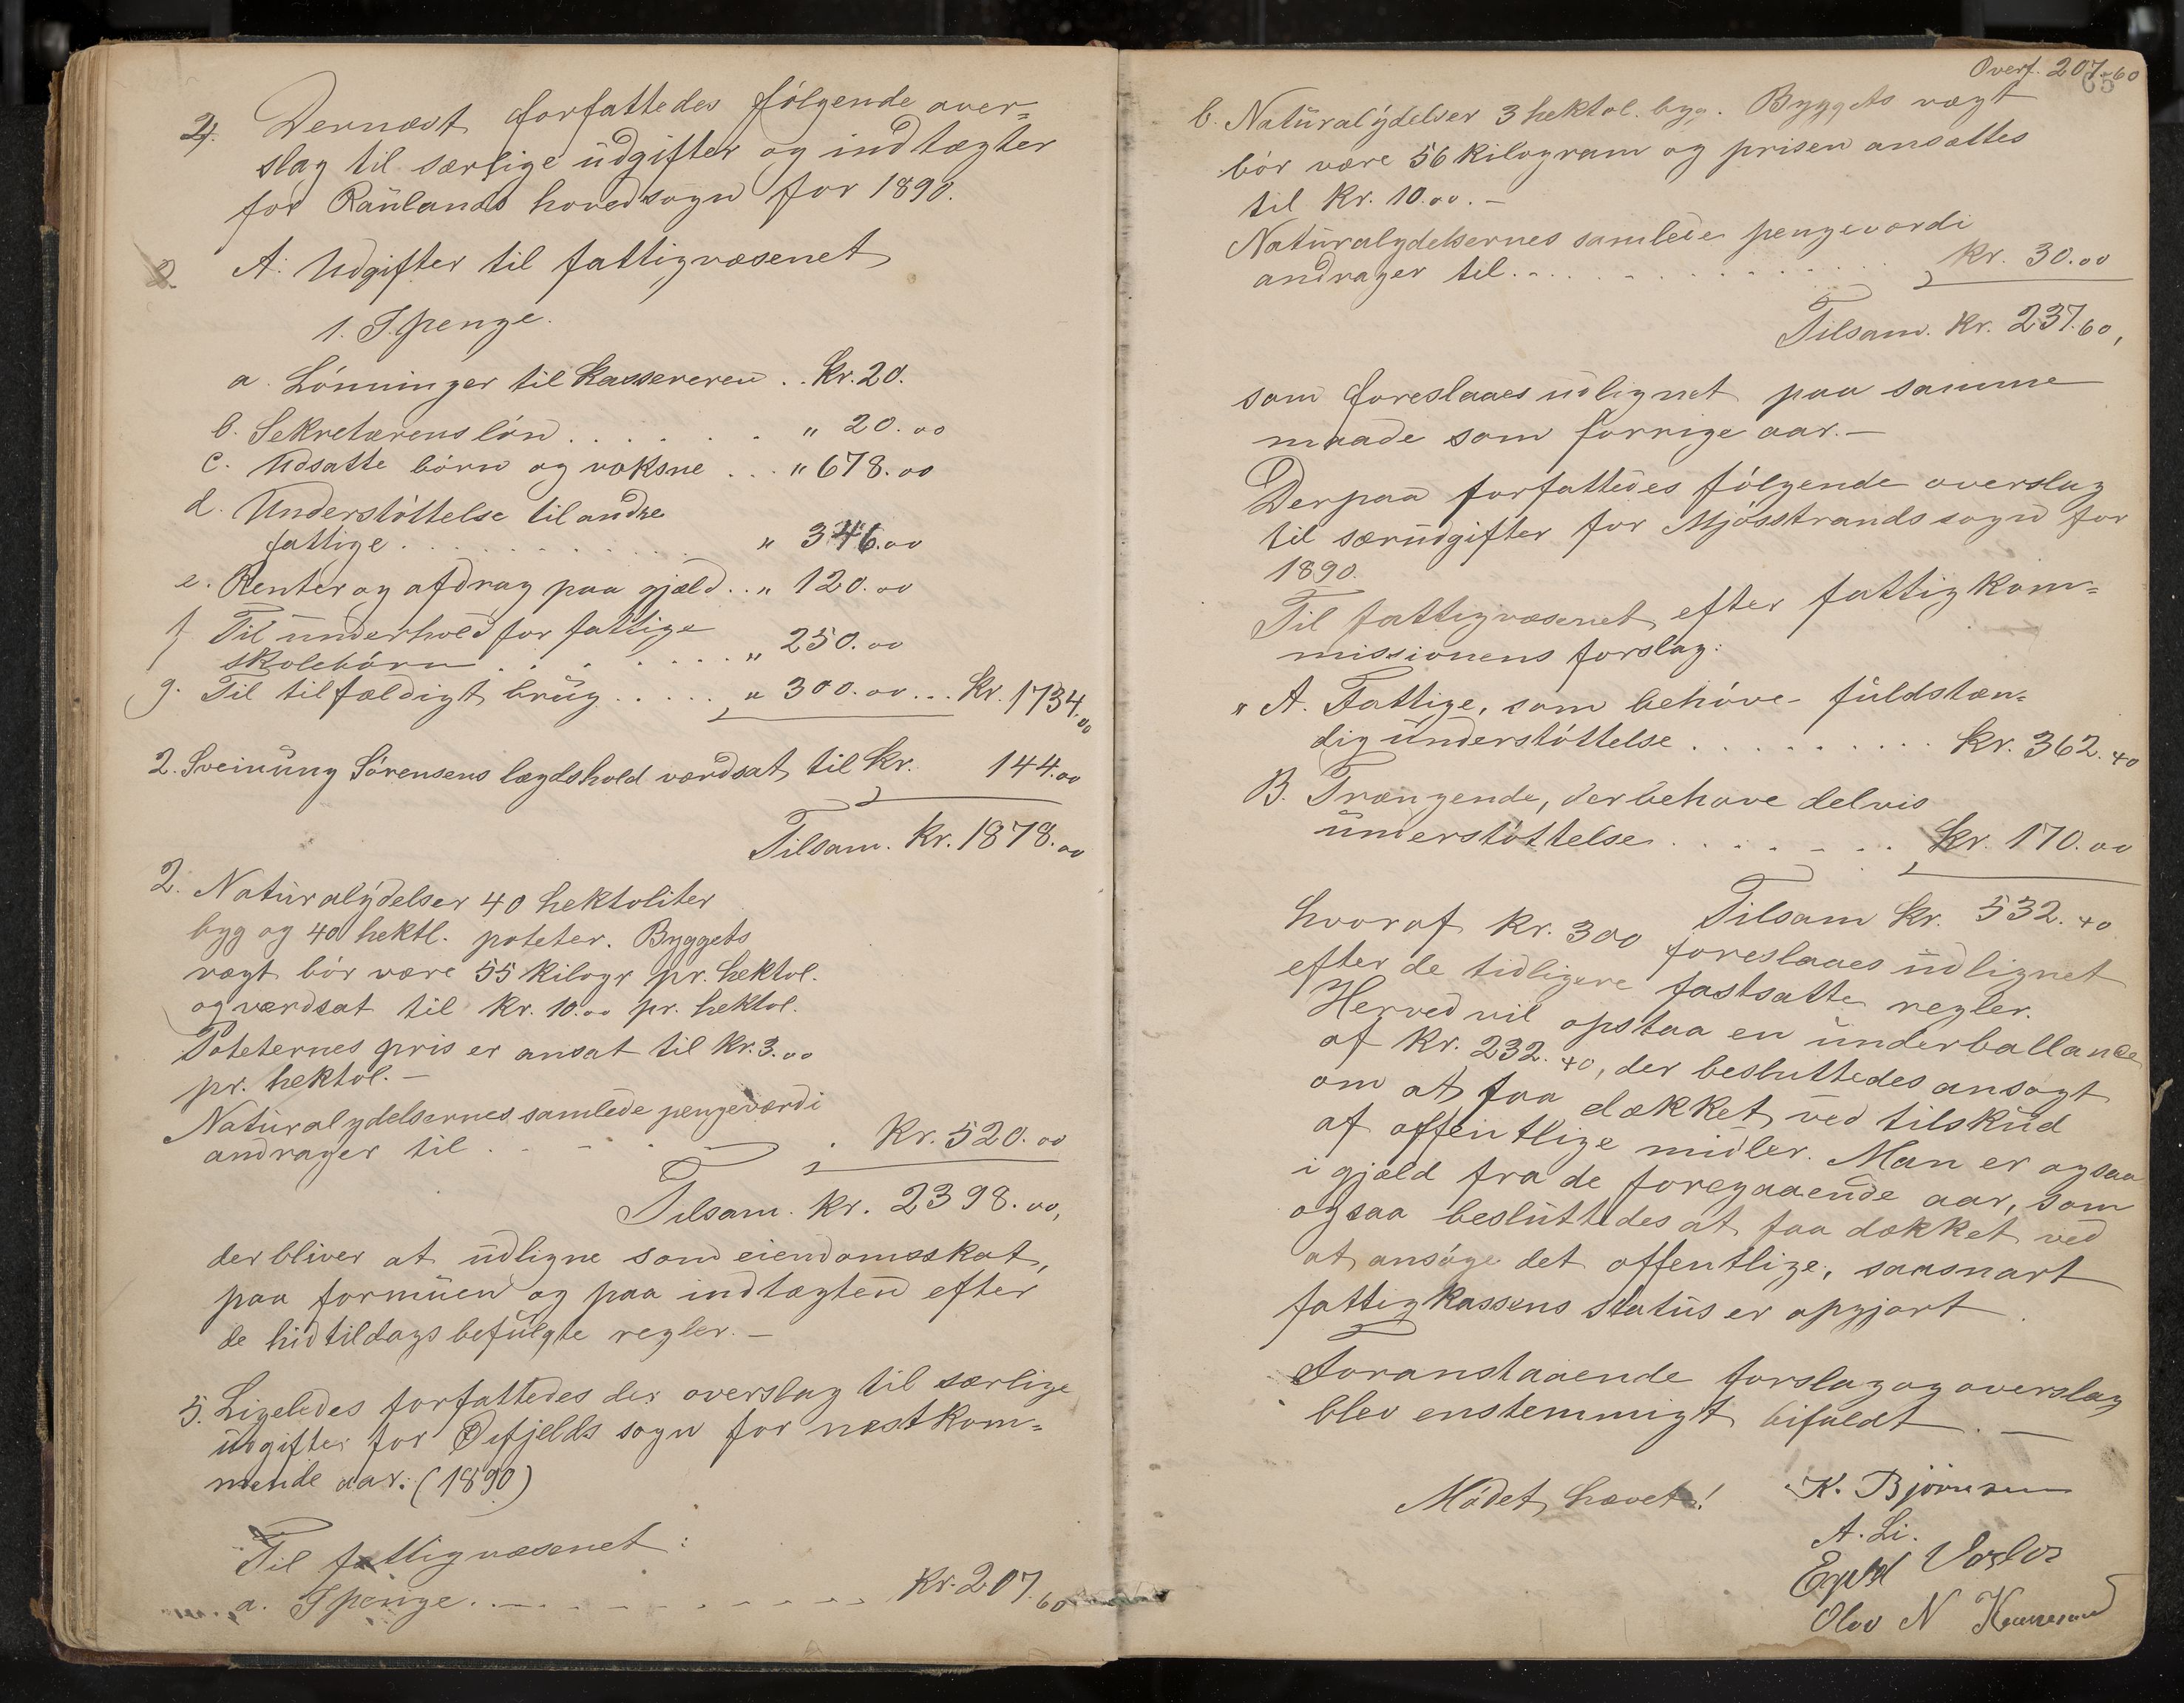 4. Dernæst forfattedes følgende over=
slag til særlige udgifter og indtægter
for Raulands hovedsogn for 1890.
A. Udgifter til fattigvæsenet
1. I penge.
a. Lønninger til kassereren . . Kr. 20.
b. Sekretærens løn . . . . . . . " 20.00
c. Udsatte børn og voksne . . . " 678.00
d. Understøttelse til andre
fattige . . . . . . . . . . . . " 346.00
e. Renter og afdrag paa gjæld . . " 120.00
f. Til underhold for fattige
skolebørn . . . . . . . . . " 250.00
g. Til tilfældigt brug . . . . . " 300.00 . . . Kr. 1734.00
2. Sveinung Sørensens lægdshold værdsat til Kr. 144.00
Tilsam. Kr. 1878.00
2. Naturalydelser 40 hektoliter
byg og 40 hektl. poteter. Byggets
vægt bør være 55 kilogr pr. hektol.
og værdsat til Kr. 10.00 pr. hektol.
Poteternes pris er ansat til Kr. 3.00
pr. hektol. —
Naturalydelsernes samlede pengeværdi
andrager til . . . . . Kr. 520.00
Tilsam. Kr. 2398.00,
der bliver at udligne som eiendomsskat,
paa formuen og paa indtægten efter
de hidtildags befulgte regler. —
5. Ligeledes forfattedes der overslag til særlige
udgifter for Øifjelds sogn for næstkom=
mende aar: (1890)
Til fattigvæsenet:
a. I penge . . . . . . . . . . Kr. 207.60
Overf. 207.60
65
b. Naturalydelser 3 hektol. byg. Byggets vægt
bør være 56 kilogram og prisen ansættes
til Kr. 10.00. —
Naturalydelsernes samlede pengeværdi
andrager til . . . . . . . . . . . Kr. 30.00
Tilsam. Kr. 237.60,
som foreslaaes udlignet paa samme
maade som forrige aar. —
Derpaa forfattedes følgende overslag
til særudgifter for Mjøsstrands sogn for
1890.
Til fattigvæsenet efter fattigkom=
missionens forslag:
" A. Fattige, som behøve fuldstæn=
dig understøttelse . . . . . . . . . . Kr. 362.40
B. Trængende, der behøve delvis
understøttelse . . . . . . . Kr. 170.00
Tilsam Kr. 532.40
hvoraf Kr. 300 foreslaaes udlignet
efter de tidligere fastsatte regler.
Herved vil opstaa en underballance
af Kr. 232.40, der besluttedes ansøgt
om at faa dækket ved tilskud
af offentlige midler. Man er ogsaa
i gjæld fra de foregaaende aar, som
ogsaa besluttedes at faa dækket ved
at ansøge det offentlige, saasnart
fattigkassens status er opgjort.
Foranstaaende forslag og overslag
blev enstemmigt bifaldt. —
Mødet hævet! K. Bjørnsen
A. Li.
Olav N